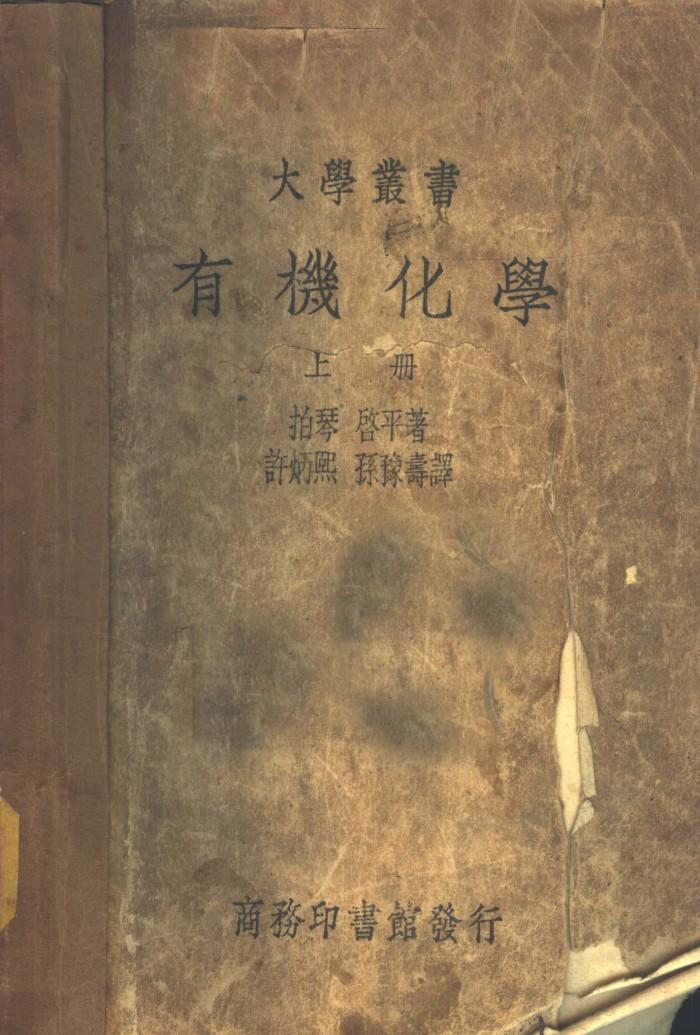 大學叢書
有機化學
上册
拍琴 啓平著
許炳熙 孫豫壽譯
商務印書館發行